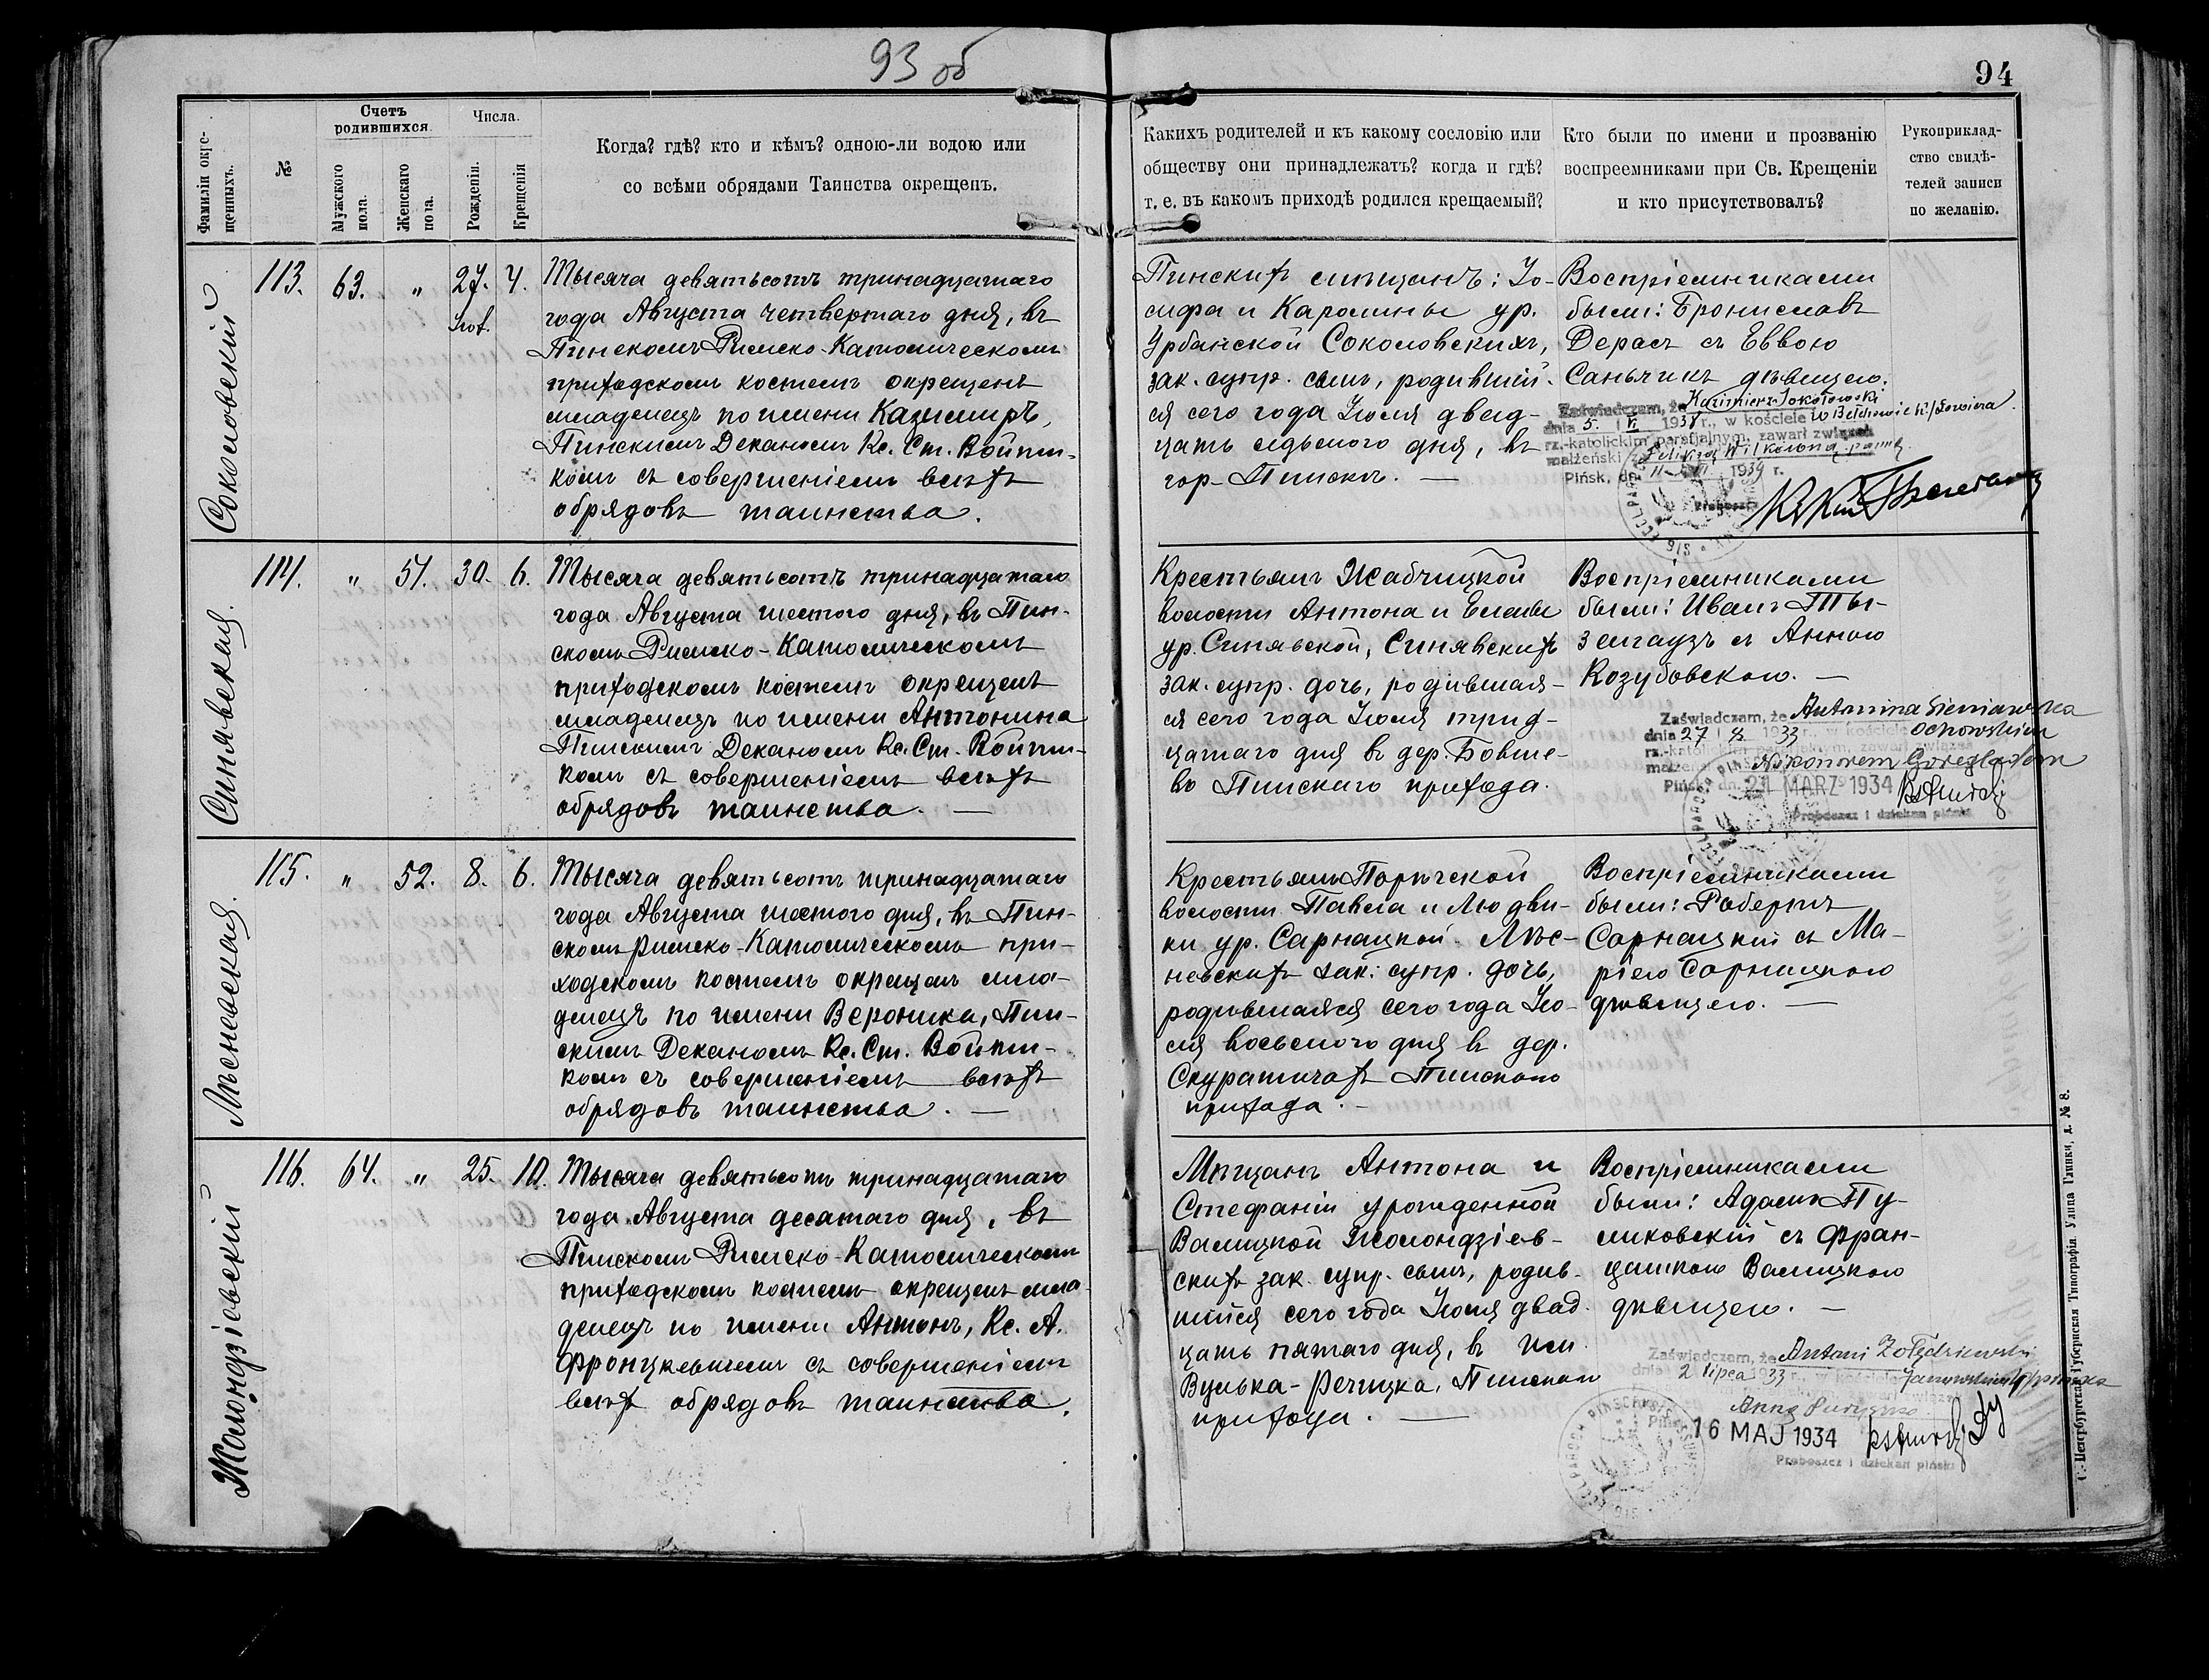 93 об
94
Фамиліи окре-
щенныхъ.
№
Счетъ
родившихся.
Мужского
пола.
Женскаго
пола.
Числа.
Рожденія.
Крещенія
Когда? гдѣ? кто и кѣмъ? одною-ли водою или
со всѣми обрядами Таинства окрещенъ.
Какихъ родителей и къ какому сословію или
обществу они принадлежатъ? когда и гдѣ?
т. е. въ какомъ приходѣ родился крещаемый?
Кто были по имени и прозванію
воспреемниками при Св. Крещеніи
и кто присутствовалъ?
Рукоприклад-
ство свидѣ-
телей записи
по желанію.
Соколовскій
113. 63. " 27. 4.
Іюл.
Тысяча девятьсотъ тринадцатаго
года Августа четвертаго дня, въ
Пинскомъ Римско-Католическомъ
приходскомъ костелѣ окрещенъ
младенецъ по имени Казимиръ,
Пинскимъ Деканомъ Кс. Ст. Войтш-
комъ съ совершеніемъ всѣхъ
обрядовъ таинства.
Пинскихъ мѣщанъ: Іо-
сифа и Каролины ур.
Урбанской Соколовскихъ,
зак. супр. сынъ, родившій-
ся сего года Іюля двад-
цать седьмого дня, въ
гор. Пинскѣ. —
Воспріемниками
были: Брониславъ
Дерасъ съ Еввою
Саньчикъ дѣвицею.
Zaświadczam, że Kazimierz Sokołowski
dnia 5. VI 1938 r., w kościele
rz.-katolickim parafjalnym, zawarł związek
małżeński z
Pińsk, dn. 11 1939 r.
Proboszcz
Синявская.
114. " 51. 30. 6.
Тысяча девятьсотъ тринадцатаго
года Августа шестого дня, въ Пин-
скомъ Римско-Католическомъ
приходскомъ костелѣ окрещенъ
младенецъ по имени Антонина
Пинскимъ Деканомъ Кс. Ст. Войтш-
комъ съ совершеніемъ всѣхъ
обрядовъ таинства. —
Крестьянъ Жабчицкой
волости Антона и Елены
ур. Синявской, Синявскихъ
зак. супр. дочь, родившая-
ся сего года Іюля трид-
цатаго дня въ дер. Ботве-
во Пинскаго прихода.
Воспріемниками
были: Иванъ Ты-
земгаузъ съ Анною
Козубовскою. —
Zaświadczam, że Antonina Sieniawska
dnia 27 1933 r., w kościele Ochowskim
rz.-katolickim parafjalnym, zawarł związek
małżeński Nikonorem
Pińsk, dn. 21 MARZ 1934
Proboszcz i dziekan piński
Лѣсневская.
115. " 52. 8. 6.
Тысяча девятьсотъ тринадцатаго
года Августа шестого дня, въ Пин-
скомъ Римско-Католическомъ при-
ходскомъ костелѣ окрещенъ мла-
денецъ по имени Вероника, Пин-
скимъ Деканомъ Кс. Ст. Войтш-
комъ съ совершеніемъ всѣхъ
обрядовъ таинства. —
Крестьянъ Порѣчской
волости Павла и Людви-
ки ур. Сарнацкой Лѣс-
невскихъ зак. супр. дочь,
родившаяся сего года Ію-
ля восьмого дня въ дер.
Скуратичахъ Пинскаго
прихода. —
Воспріемниками
были: Робертъ
Сарнацкій съ Ма-
ріею Сарнацкою
дѣвицею. —
Жолондзіовскій
116. 64. " 25. 10.
Тысяча девятьсотъ тринадцатаго
года Августа десятаго дня, въ
Пинскомъ Римско-Католическомъ
приходскомъ костелѣ окрещенъ мла-
денецъ по имени Антонъ, Кс. А.
Фронцкевичемъ съ совершеніемъ
всѣхъ обрядовъ таинства.
Мѣщанъ Антона и
Стефаніи урожденной
Валицкой Жолондзіев-
скихъ зак. супр. сынъ, родив-
шійся сего года Іюля двад-
цать пятаго дня, въ им.
Вулька-Речицка, Пинскаго
прихода. —
Воспріемниками
были: Адамъ Пу-
ликовскій съ Фран-
цишкою Валицкою
дѣвицею. —
Zaświadczam, że Antoni Żołędziewski
dnia 2 lipca 1933 r., w kościele
Anną
16 MAJ 1934
Proboszcz i dziekan piński
С.-Петербургская Губернская Типографія Улица Глинки, д. № 8.